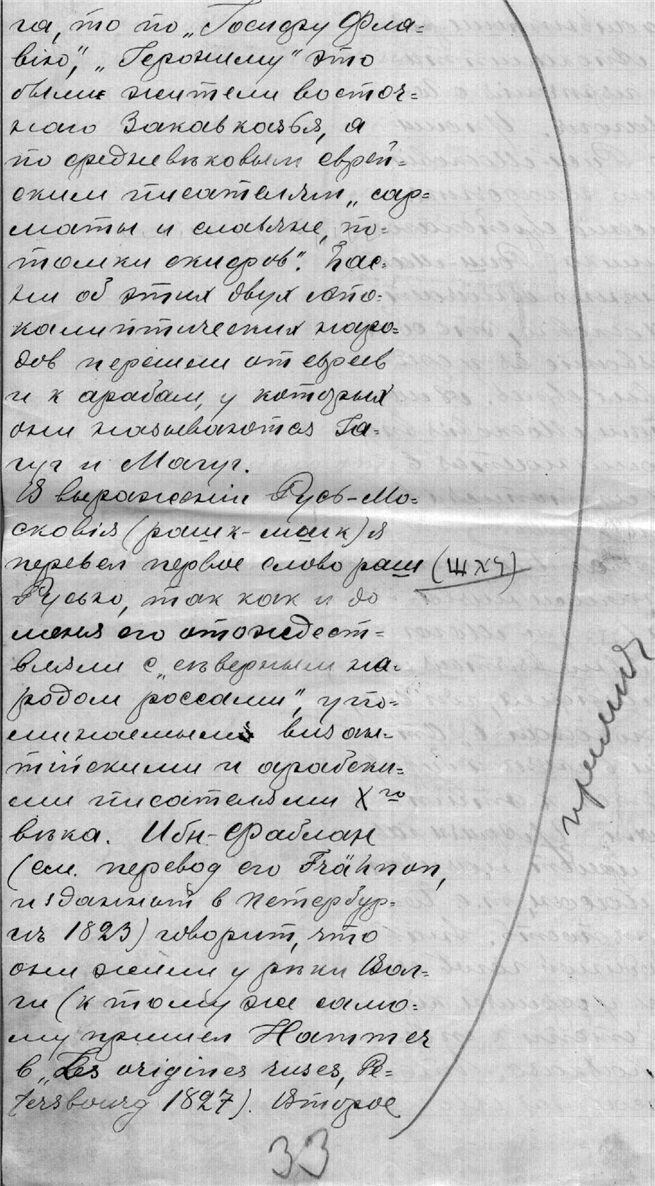 га, то по „Iосифу Фла=
вiю“, „Герониму“ это
были жители восточ=
наго Закавказья, а
по средневѣковым еврей=
ским писателям „сар=
маты и славяне, по=
томки скифов“. Бас=
ни об этих двух апо=
калиптических наро=
дов перешли от евреев
и к арабам, у которых
они называются Га=
гуг и Магуг.
В выраженiи Русь-Мо=
сковiя (рашк-машк) я
перевел первое слово раш (ШХЧ)
Русью, так как и до
меня его отождест=
вляли с „сѣверным на=
родом россами“, упо=
минаемыми визан=
тiйскими и арабски=
ми писателями Xго
вѣка. Ибн-Фаблан
(см. перевод его Frähnом,
изданный в Петербур=
гѣ 1823) говорит, что
они жили у рѣки Вол=
ги (к тому же само=
му пришел Hammer
в „Les origines ruses, Pe=
tersbourg 1827). Второе
33